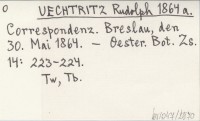 o
UECHTRITZ Rudolph 1864 a.
Correspondenz. Breslau, den
30. Mai 1864. – Oester. Bot. Zs.
14: 223–224.
Tw, Tb.